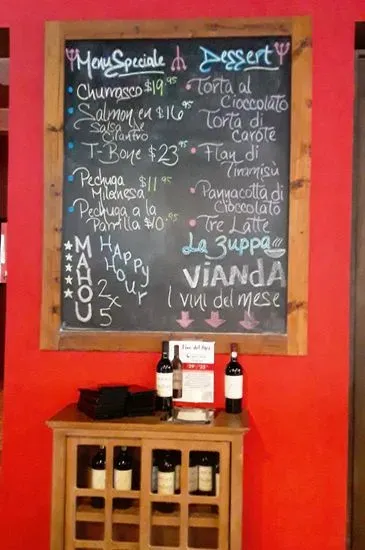 Menu Speciale
Churrasco $19.95
Salmon en $16.95
Salsa de
Cilantro
T-Bone $23.95
Pechuga $11.95
Milanesa
Pechuga a la
Parrilla $10.95
MAHOU
Happy
Hour
2x
5
Dessert
Torta al
cioccolato
Torta di
carote
Flan di
Tiramisù
Pannacotta di
cioccolato
Tre Latte
La Zuppa
VIANDA
I vini del mese